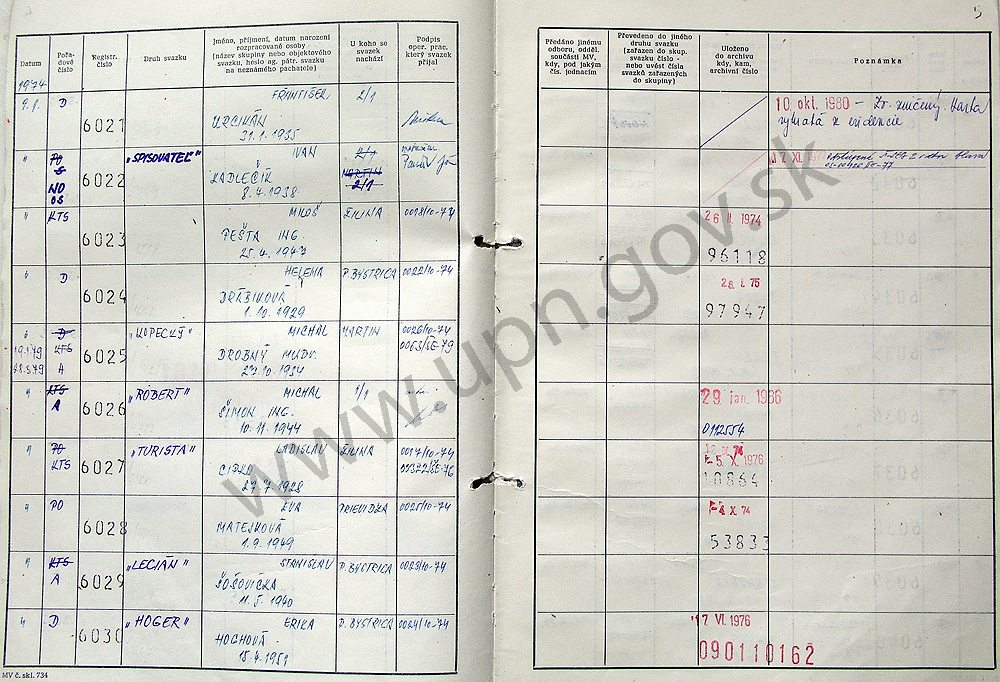 5
Datum
Pořadové číslo
Registr. číslo
Druh svazku
Jméno, příjmení, datum narození rozpracované osoby (název skupiny nebo objektového svazku, heslo ag. pátr. svazku na neznámého pachatele)
U koho se svazek nachází
Podpis oper. prac. který svazek přijal
Předáno jinému odboru, odděl. součásti MV, kdy, pod jakým čís. jednacím
Převedeno do jiného druhu svazku (zařazen do skup. svazku číslo - nebo uvést čísla svazků zařazených do skupiny)
Uloženo do archivu kdy, kam, archivní číslo
Poznámka
1974
9.1. D 6021 FRANTIŠEK 2/1
31.1.1935
10. okt. 1980 - Zv. zničený. Karta
vyňatá z evidencie
" PO 6022 „SPISOVATEĽ" IVAN 2/1
KADLEČÍK MARTIN
8.4.1938 2/1
17 XI.
" KTS 6023 MILOŠ ŽILINA 0018/10-74
PEŠTA ING.
25.4.1947
26 II. 1974
96118
" D 6024 HELENA P. BYSTRICA 0022/10-74
DRÁBIKOVÁ
1.10.1929
28. I. 75
97947
" D 6025 „KOPECKÝ" MICHAL MARTIN 0026/10-74
KTS DROBNÝ MUDr.
A 27.10.1934
" KTS 6026 „RÓBERT" MICHAL 1/1
A ŠIMON ING.
10.11.1944
29. jan. 1986
012554
" PO 6027 „TURISTA" LADISLAV ŽILINA 0017/10-74
KTS
27.7.1928
5. X. 1976
10864
" PO 6028 EVA PRIEVIDZA 0025/10-74
MATEJKOVÁ
1.9.1949
4 X. 74
53833
" KTS 6029 „LECIÁN" STANISLAV P. BYSTRICA 0023/10-74
A ŠOŠOVIČKA
11.5.1940
" D 6030 „HOGER" ERIKA P. BYSTRICA 0024/10-74
HOCHOVÁ
15.4.1951
17 VI. 1976
090110162
MV č. skl. 734
www.upn.gov.sk